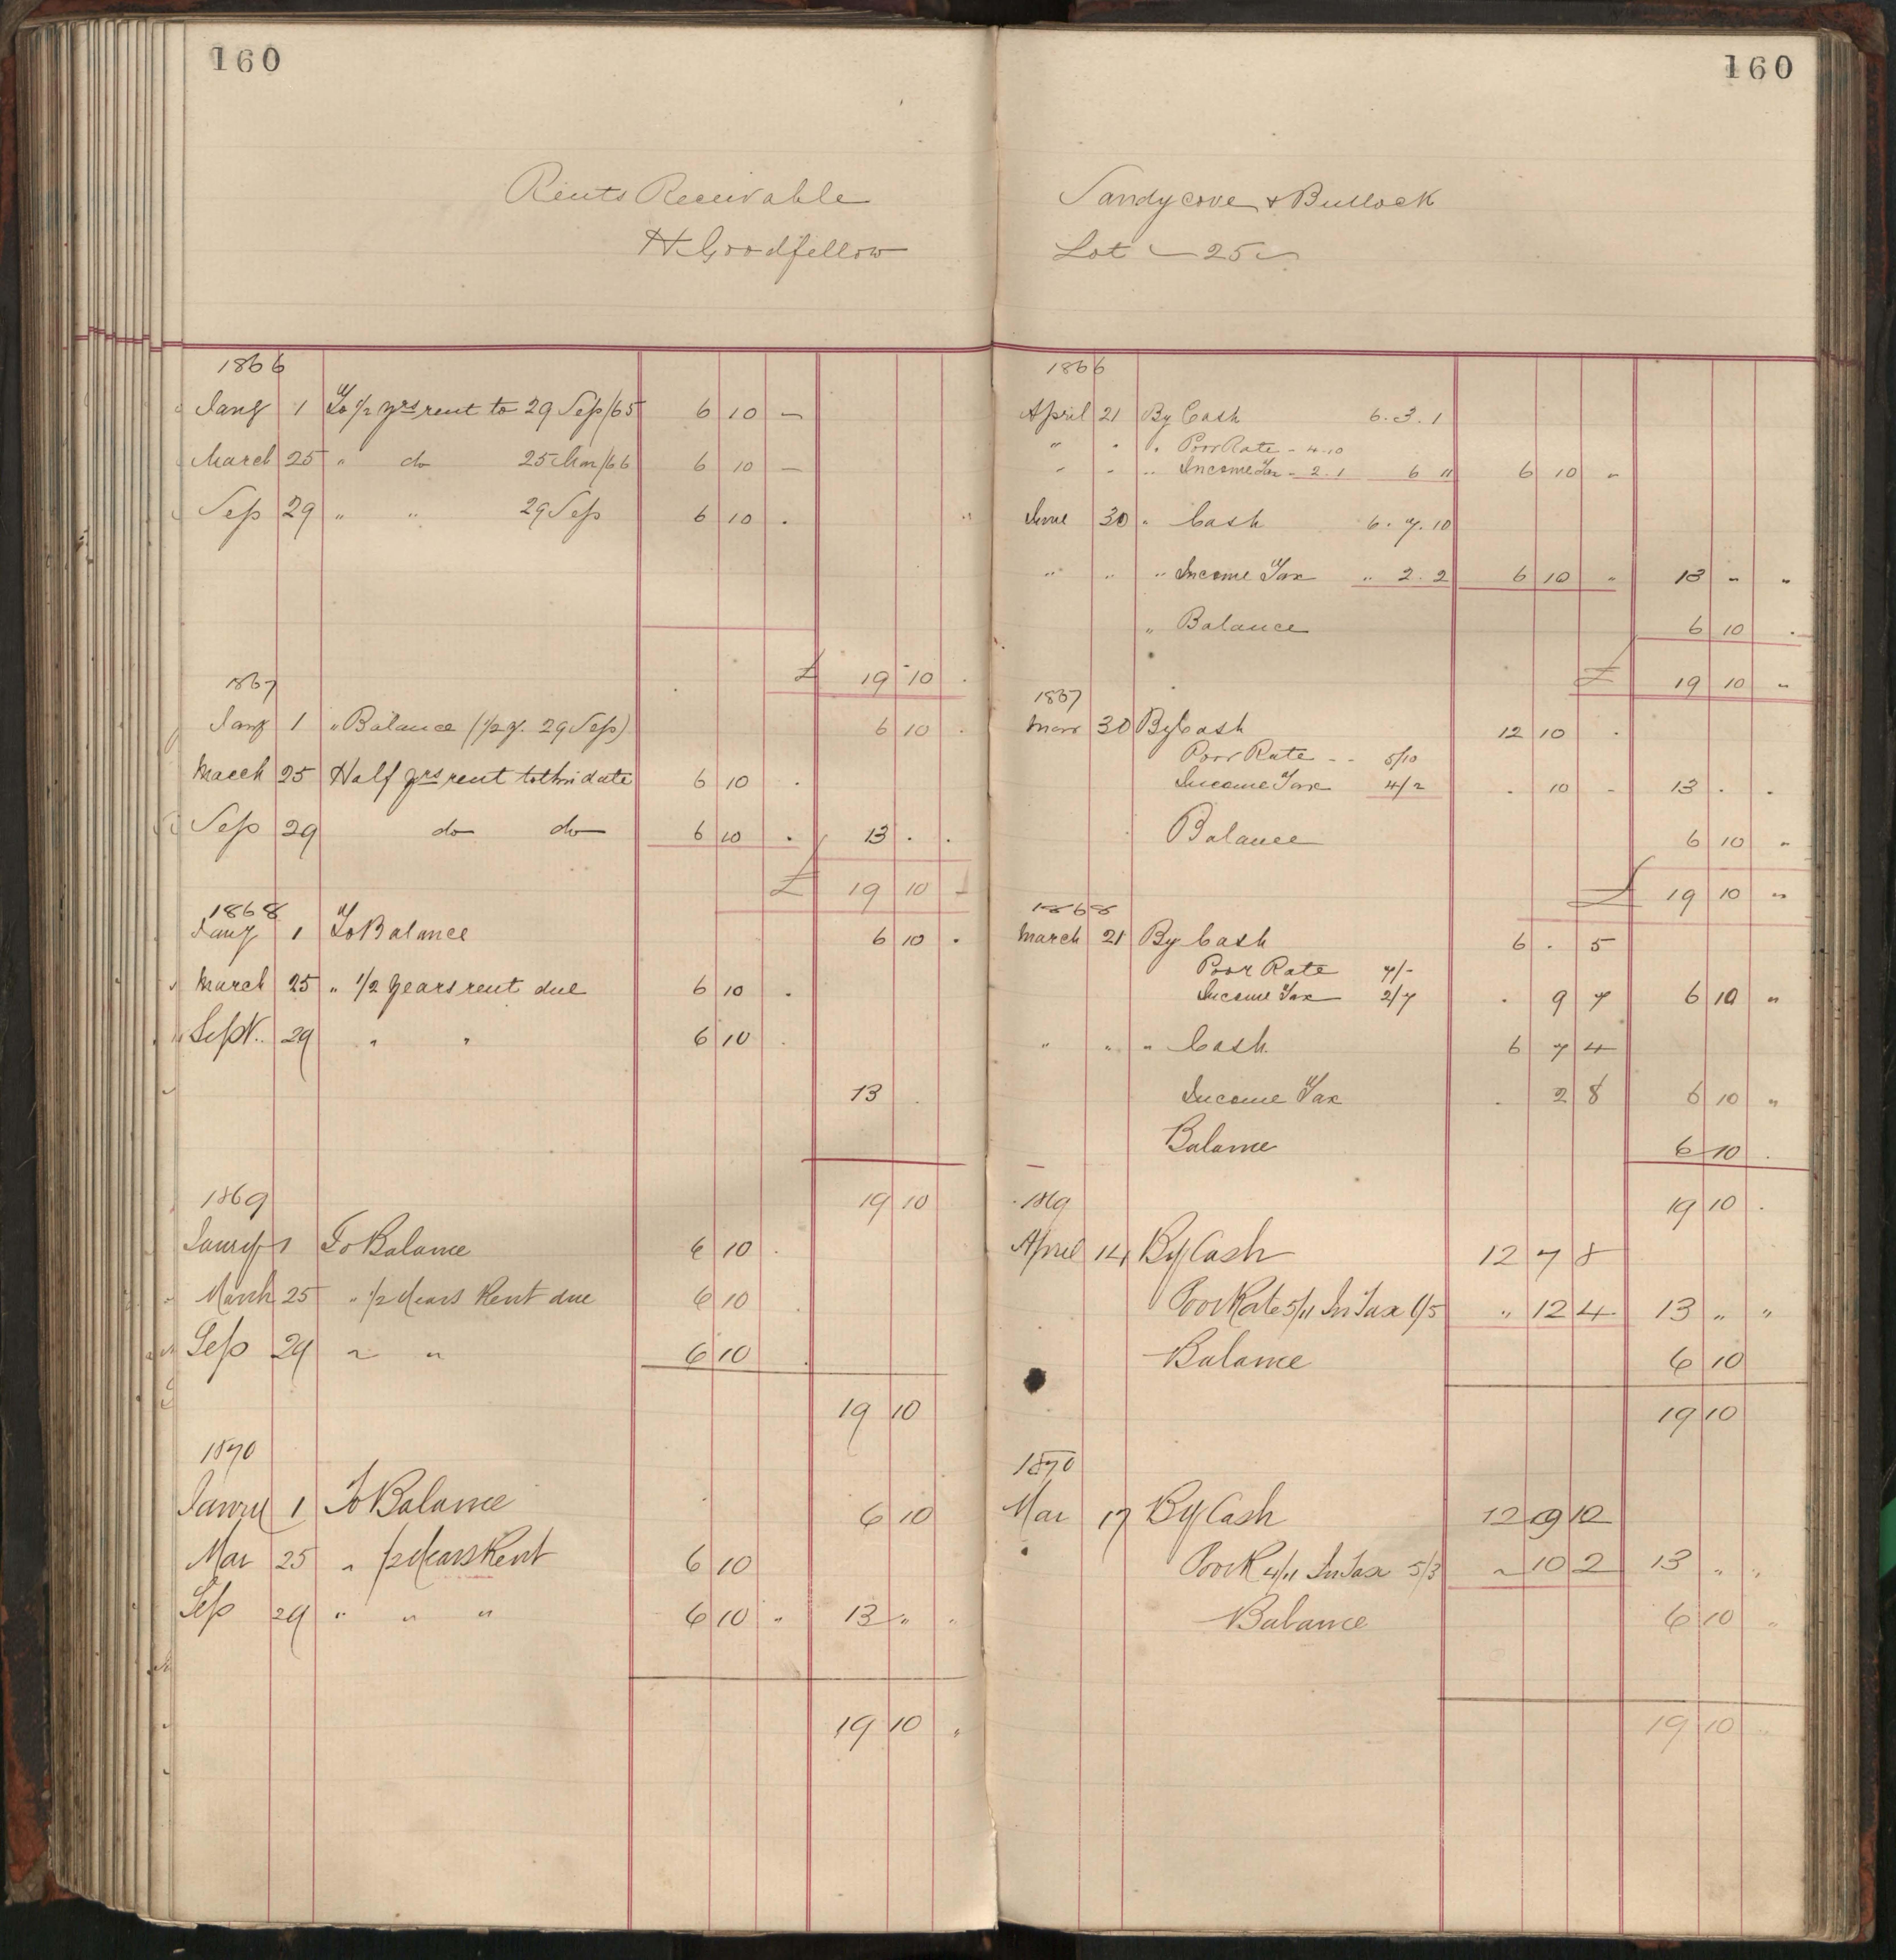 160
Rents Receivable
H. Goodfellow
1866
Jany 1 To 1/2 yrs rent to 29 Sep/65 6 10 –
March 25 " do 25 Mar/66 6 10 –
Sep 29 " " 29 Sep 6 10 .
£ 19 10 .
1867
Jany 1 " Balance (1/2 y. 29 Sep) 6 10 .
March 25 Half yrs rent to this date 6 10 .
Sep 29 do do 6 10 . 13 . .
£ 19 10 –
1868
Jany 1 To Balance 6 10 .
March 25 " 1/2 years rent due 6 10 .
Sept. 29 " " 6 10 .
13 .
19 10
1869
Jany 1 To Balance 6 10 .
March 25 " 1/2 Years Rent due 6 10 .
Sep 29 " " 6 10 .
19 10
1870
Janry 1 To Balance 6 10
Mar 25 " 1/2 Years Rent 6 10
Sep 29 " " " 6 10 " 13 " "
19 10 "
160
Sandycove & Bullock
Lot – 25 –
1866
April 21 By Cash 6. 3. 1
" " " Poor Rate - 4.10
" " " Income Tax - 2. 1 6 11 6 10 "
June 30 " Cash 6. 7. 10
" " " Income Tax " 2. 2 6 10 " 13 " "
" Balance 6 10 .
£ 19 10 "
1867
Mar 30 By Cash 12 10 .
Poor Rate - - 5/10
Income Tax 4/2 . 10 - 13 . .
Balance 6 10 "
£ 19 10 "
1868
March 21 By Cash 6 . 5
Poor Rate 7/-
Income Tax 2/7 . 9 7 6 10 "
" " " Cash 6 7 4
Income Tax . 2 8 6 10 "
Balance 6 10 .
19 10 .
1869
April 14 By Cash 12 7 8
Poor Rate 5/11 In Tax 6/5 " 12 4 13 " "
Balance 6 10
19 10
1870
Mar 17 By Cash 12 9 10
Poor R 4/11 In Tax 5/3 " 10 2 13 " "
Balance 6 10 "
19 10 "